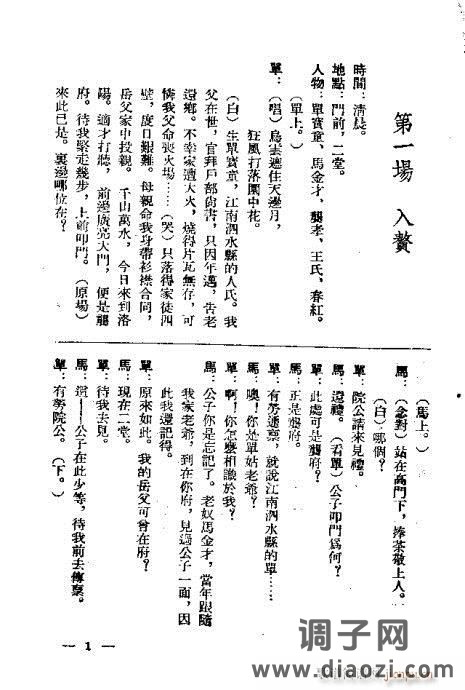 第一場　入贅
時間：清晨。
地點：門前，二堂。
人物：單寶童、馬金才，龔老，王氏，春紅。
（單上。）
單：（唱）烏雲遮住天邊月，
狂風打落園中花。
（白）生單寶童，江南泗水縣的人氏。我
父在世，官拜戶部尙書，只因年邁，告老
還鄉。不幸家遭大火，燒得片瓦無存，可
憐我父命喪火場……（哭）只落得家徒四
壁，度日艱難。母親命我身帶衫襟合同，
岳父家中投親。千山萬水，今日來到洛
陽。適才打聽，前邊廣亮大門，便是龔
府。待我緊走幾步，上前叩門。（原場）
來此已是。裏邊哪位在？
（馬上。）
馬：（念對）站在高門下，捧茶敬上人。
（白）哪個？
單：院公請來見禮。
馬：還禮。（看單）公子叩門爲何？
單：此處可是龔府？
馬：正是龔府。
單：有勞通稟，就說江南泗水縣的單……
馬：噢！你是單姑老爺？
單：啊！你怎麼相識於我？
馬：公子你是忘記了。老奴馬金才，當年跟隨
我家老爺，到在你府，見過公子一面，因
此我還記得。
單：原來如此。我的岳父可曾在府？
馬：現在二堂。
單：待我去見。
馬：這——公子在此少等，待我前去傳稟。
單：有勞院公。（下。）
— 1 —
调子网
www.diaozi.com